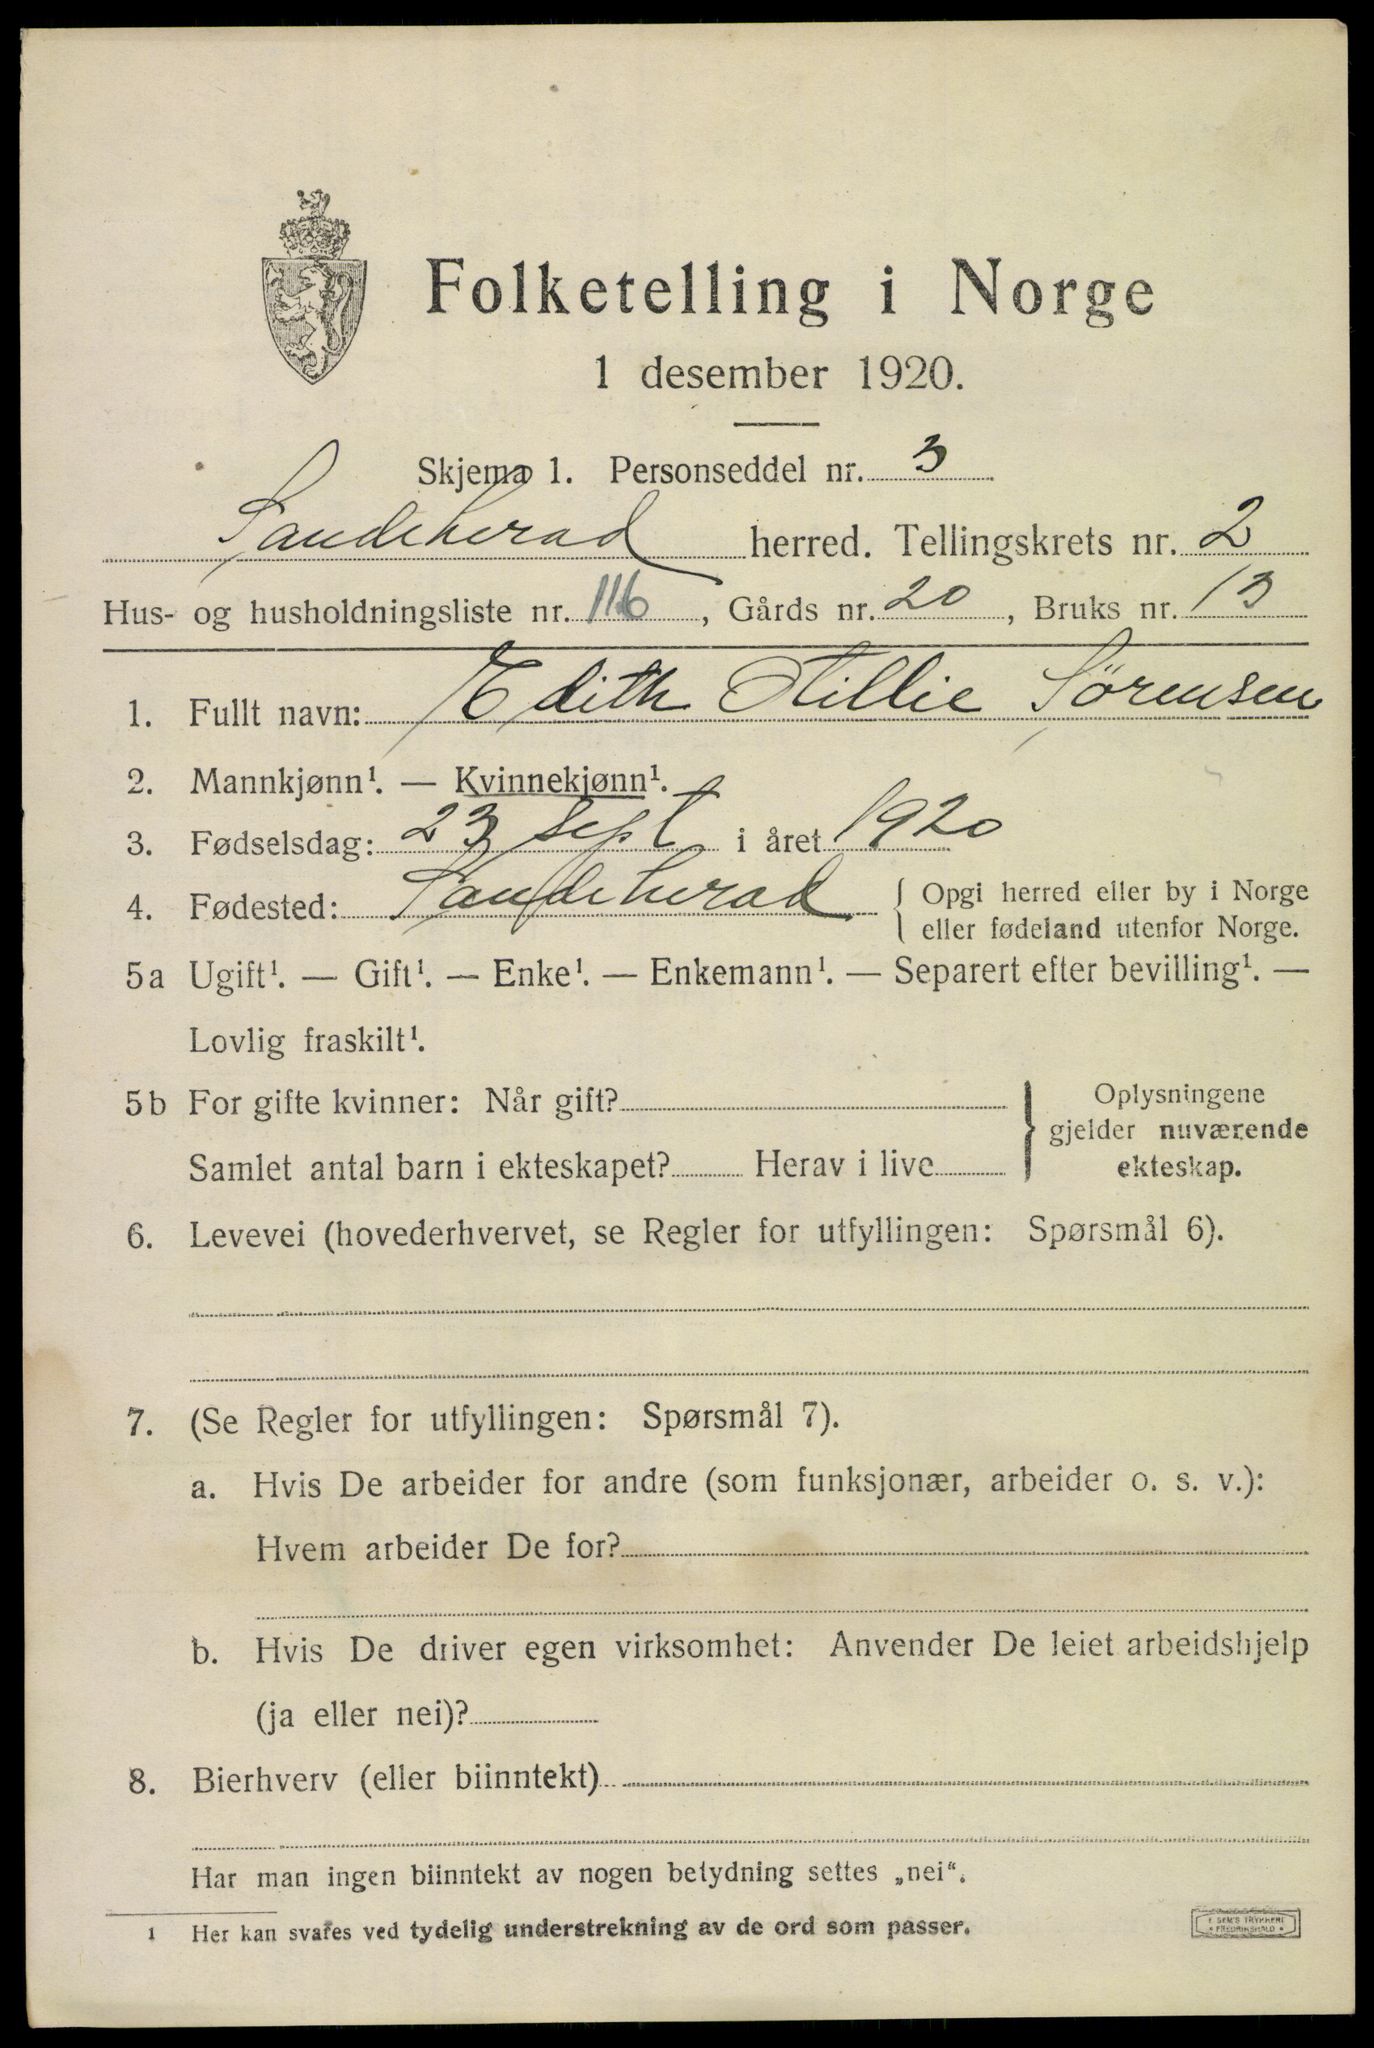 Folketelling i Norge
1 desember 1920.
Skjema 1. Personseddel nr. 3
Sandeherad herred. Tellingskrets nr. 2
Hus- og husholdningsliste nr. 116, Gårds nr. 20, Bruks nr. 13
1. Fullt navn: Edith Sørensen
2. Mannkjønn¹. — Kvinnekjønn¹.
3. Fødselsdag: 23 sept i året 1920
4. Fødested: Sandeherad { Opgi herred eller by i Norge
eller fødeland utenfor Norge.
5a Ugift¹. — Gift¹. — Enke¹. — Enkemann¹. — Separert efter bevilling¹. —
Lovlig fraskilt¹.
5b For gifte kvinner: Når gift?
Samlet antal barn i ekteskapet? Herav i live
} Oplysningene
gjelder nuværende
ekteskap.
6. Levevei (hovederhvervet, se Regler for utfyllingen: Spørsmål 6).
7. (Se Regler for utfyllingen: Spørsmål 7).
a. Hvis De arbeider for andre (som funksjonær, arbeider o. s. v.):
Hvem arbeider De for?
b. Hvis De driver egen virksomhet: Anvender De leiet arbeidshjelp
(ja eller nei)?
8. Bierhverv (eller biinntekt)
Har man ingen biinntekt av nogen betydning settes „nei“.
1 Her kan svares ved tydelig understrekning av de ord som passer.
E. SEM'S TRYKKERI
• FREDRIKSHALD •